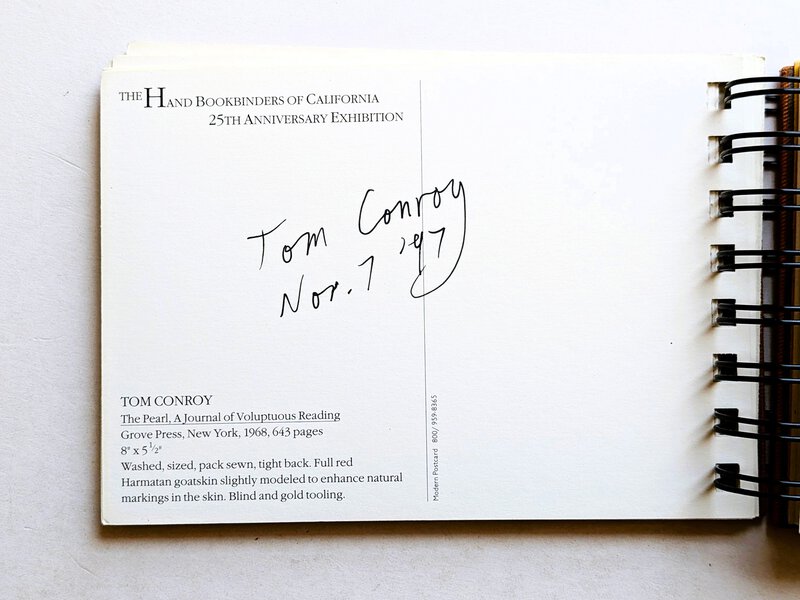 THE HAND BOOKBINDERS OF CALIFORNIA
25TH ANNIVERSARY EXHIBITION
Tom Conroy
Nov. 7 '97
TOM CONROY
The Pearl, A Journal of Voluptuous Reading
Grove Press, New York, 1968, 643 pages
8" x 5 1/2"
Washed, sized, pack sewn, tight back. Full red
Harmatan goatskin slightly modeled to enhance natural
markings in the skin. Blind and gold tooling.
Modern Postcard 800/ 959-8365